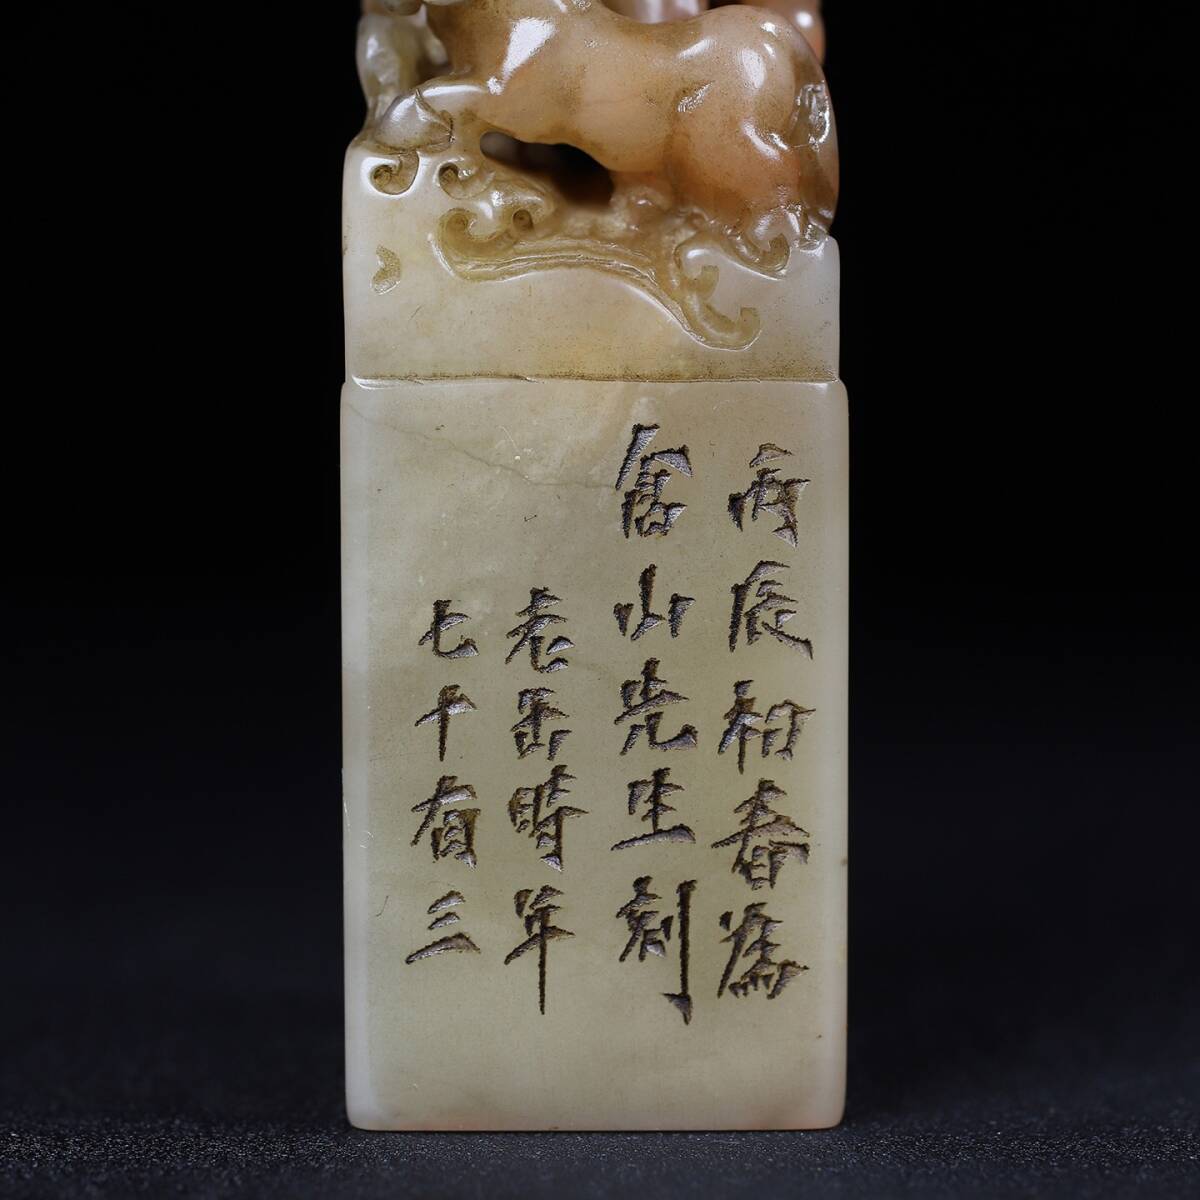 丙辰初春為
山先生刻
老缶時年
七十有三